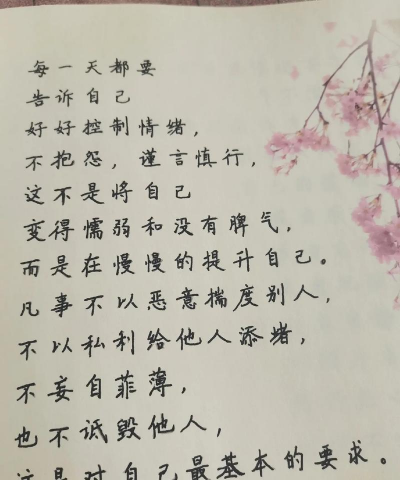 每一天都要
告诉自己
好好控制情绪，
不抱怨，谨言慎行，
这不是将自己
变得懦弱和没有脾气，
而是在慢慢的提升自己。
凡事不以恶意揣度别人，
不以私利给他人添堵，
不妄自菲薄，
也不诋毁他人，
这是对自己最基本的要求。